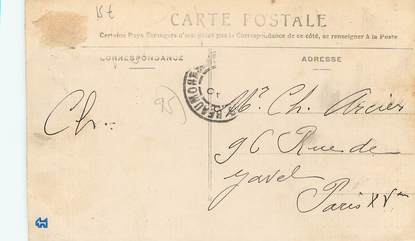 15 t
CARTE POSTALE
Certains Pays Étrangers n'acceptent pas la Correspondance de ce côté, se renseigner à la Poste
CORRESPONDANCE
ADRESSE
BEAUMONT
95
Ch.
Mr Ch. Arcier
96 Rue de
Javel
Paris XVme